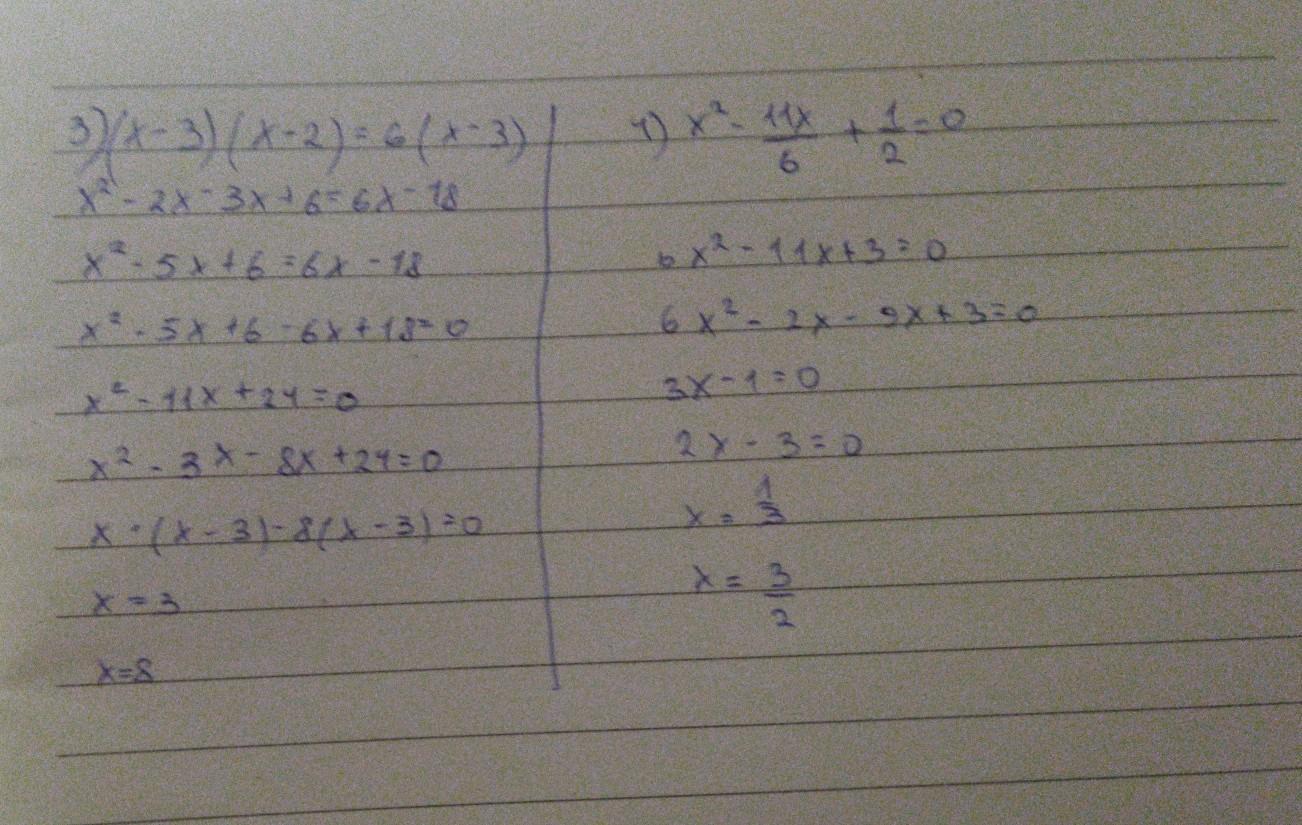 3) (x-3)(x-2)=6(x-3)
x²-2x-3x+6=6x-18
x²-5x+6=6x-18
x²-5x+6-6x+18=0
x²-11x+24=0
x²-3x-8x+24=0
x·(x-3)-8(x-3)=0
x=3
x=8
4) x²-11x/6+1/2=0
6x²-11x+3=0
6x²-2x-9x+3=0
3x-1=0
2x-3=0
x=1/3
x=3/2